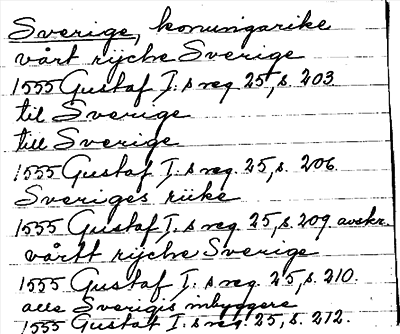 Sverige, konungarike
vårt rijche Sverige
1555 Gustaf I:s reg. 25, s. 203
til Sverige
till Sverige
1555 Gustaf I:s reg. 25, s. 206.
Sveriges riike
1555 Gustaf I:s reg. 25, s. 209 avskr.
vårtt rijche Sverige
1555 Gustaf I:s reg. 25, s. 210.
alle Sverigis inbyggere
1555 Gustaf I:s reg. 25, s. 212.